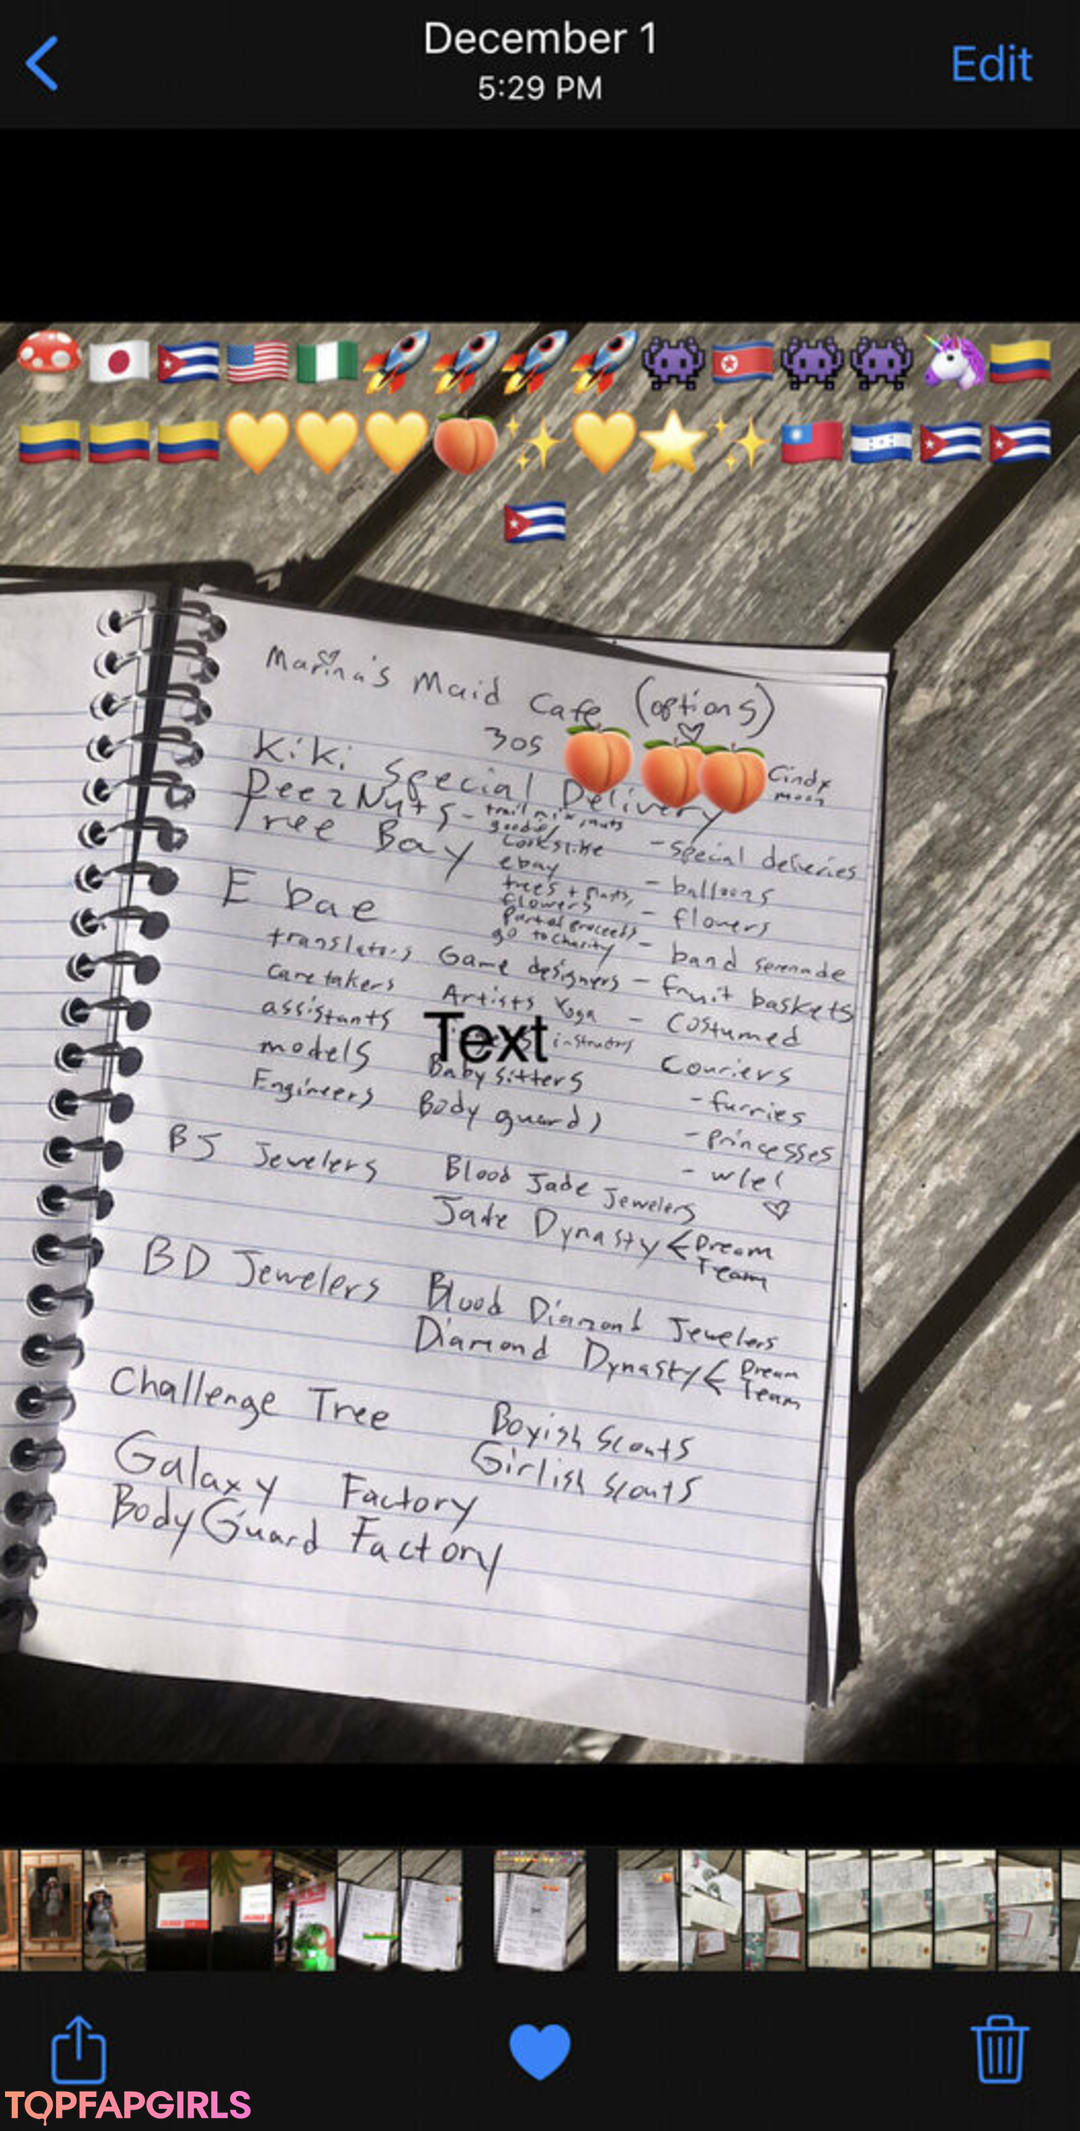 December 1
5:29 PM
Edit
Marina's Maid Cafe (options)
305
Kiki Special Delivery
Cindy
moon
DeezNuts - trail mix, nuts
goodies
Tree Bay
looks like
ebay
trees + plants,
flowers
Partial proceeds
go to charity
- special deliveries
- balloons
- flowers
- band serenade
- fruit baskets
- Costumed
Couriers
- furries
- princesses
- w/e!
E bae
translators Game designers
care takers Artists Yoga
assistants instructors
models Baby sitters
Engineers Body guards
Text
BJ Jewelers Blood Jade Jewelers
Jade Dynasty < Dream
Team
BD Jewelers Blood Diamond Jewelers
Diamond Dynasty < Dream
Team
Challenge Tree Boyish Scouts
Girlish Scouts
Galaxy Factory
BodyGuard Factory
TOPFAPGIRLS